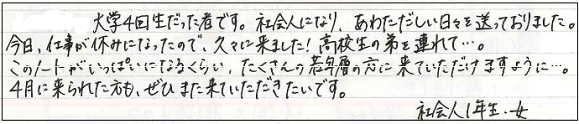 大学4回生だった者です。社会人になり、あわただしい日々を送っておりました。
今日、仕事が休みになったので、久々に来ました!高校生の弟を連れて…。
このノートがいっぱいになるくらい、たくさんの若年層の方に来ていただけますように…。
4月に来られた方も、ぜひまた来ていただきたいです。
社会人1年生・女